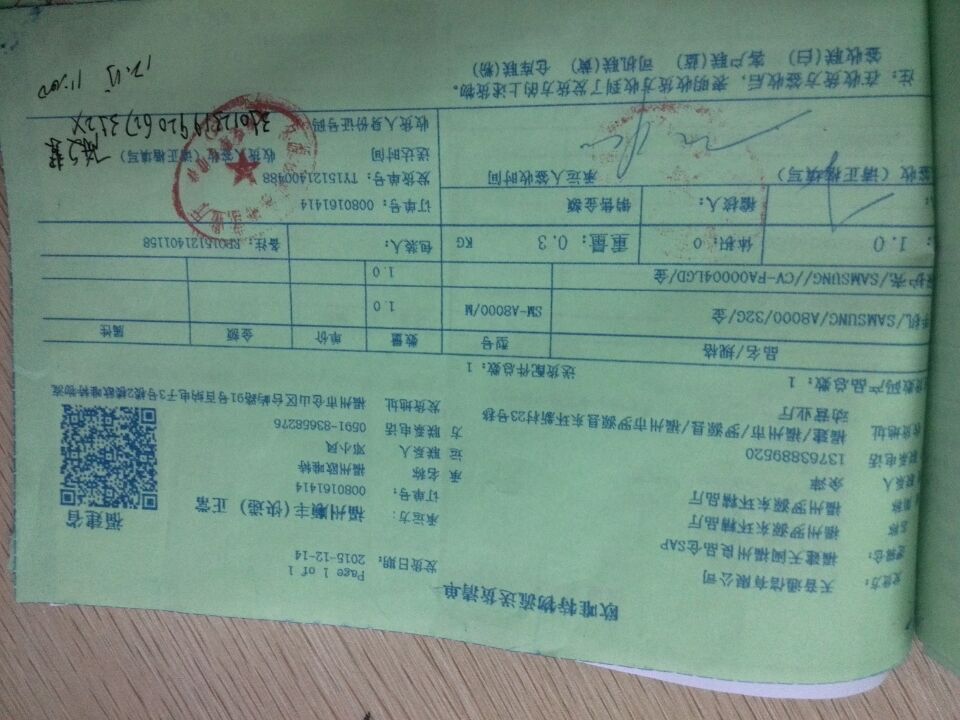 欧唯特物流送货清单
Page 1 of 1
发货方: 天音通信有限公司
发货日期: 2015-12-14
逻辑仓: 福建天闽福州良品仓SAP
福建省
名称 福州罗源东环精品厅
承运方: 福州顺丰(快递) 正常
福州罗源东环精品厅
订单号: 0080161414
联系人 余漈
承 名称 福州欧唯特
联系电话 13763889520
运 联系人 邓小凤
收货地址 福建/福州/市/罗源县/福州市罗源县东环新村23号移
方 联系电话 0591-83658276
动营业厅
发货地址 福州市仓山区台屿路91号百纳电子3号楼2楼欧唯特物流
数码产品总数: 1
送货配件总数: 1
品名/规格 型号 数量 单价 金额 属性
手机/SAMSUNG/A8000/32G/金 SM-A8000/M 1.0
保护壳/SAMSUNG//CV-PA00004LGD/金 1.0
: 1.0 体积: 0 重量: 0.3 KG 包装人: 备注: RP015121401158
稽核人 销售金额 订单号: 0080161414
发货单号: TY15121400488
签收(请正楷填写) 承运人签收时间 送达时间 收货人签收(请正楷填写)
收货人身份证号码
注: 在收货方签收后, 表明收货方收到了发货方的上述货物。
签收联(白) 客户联(蓝) 司机联(黄) 仓库联(粉)